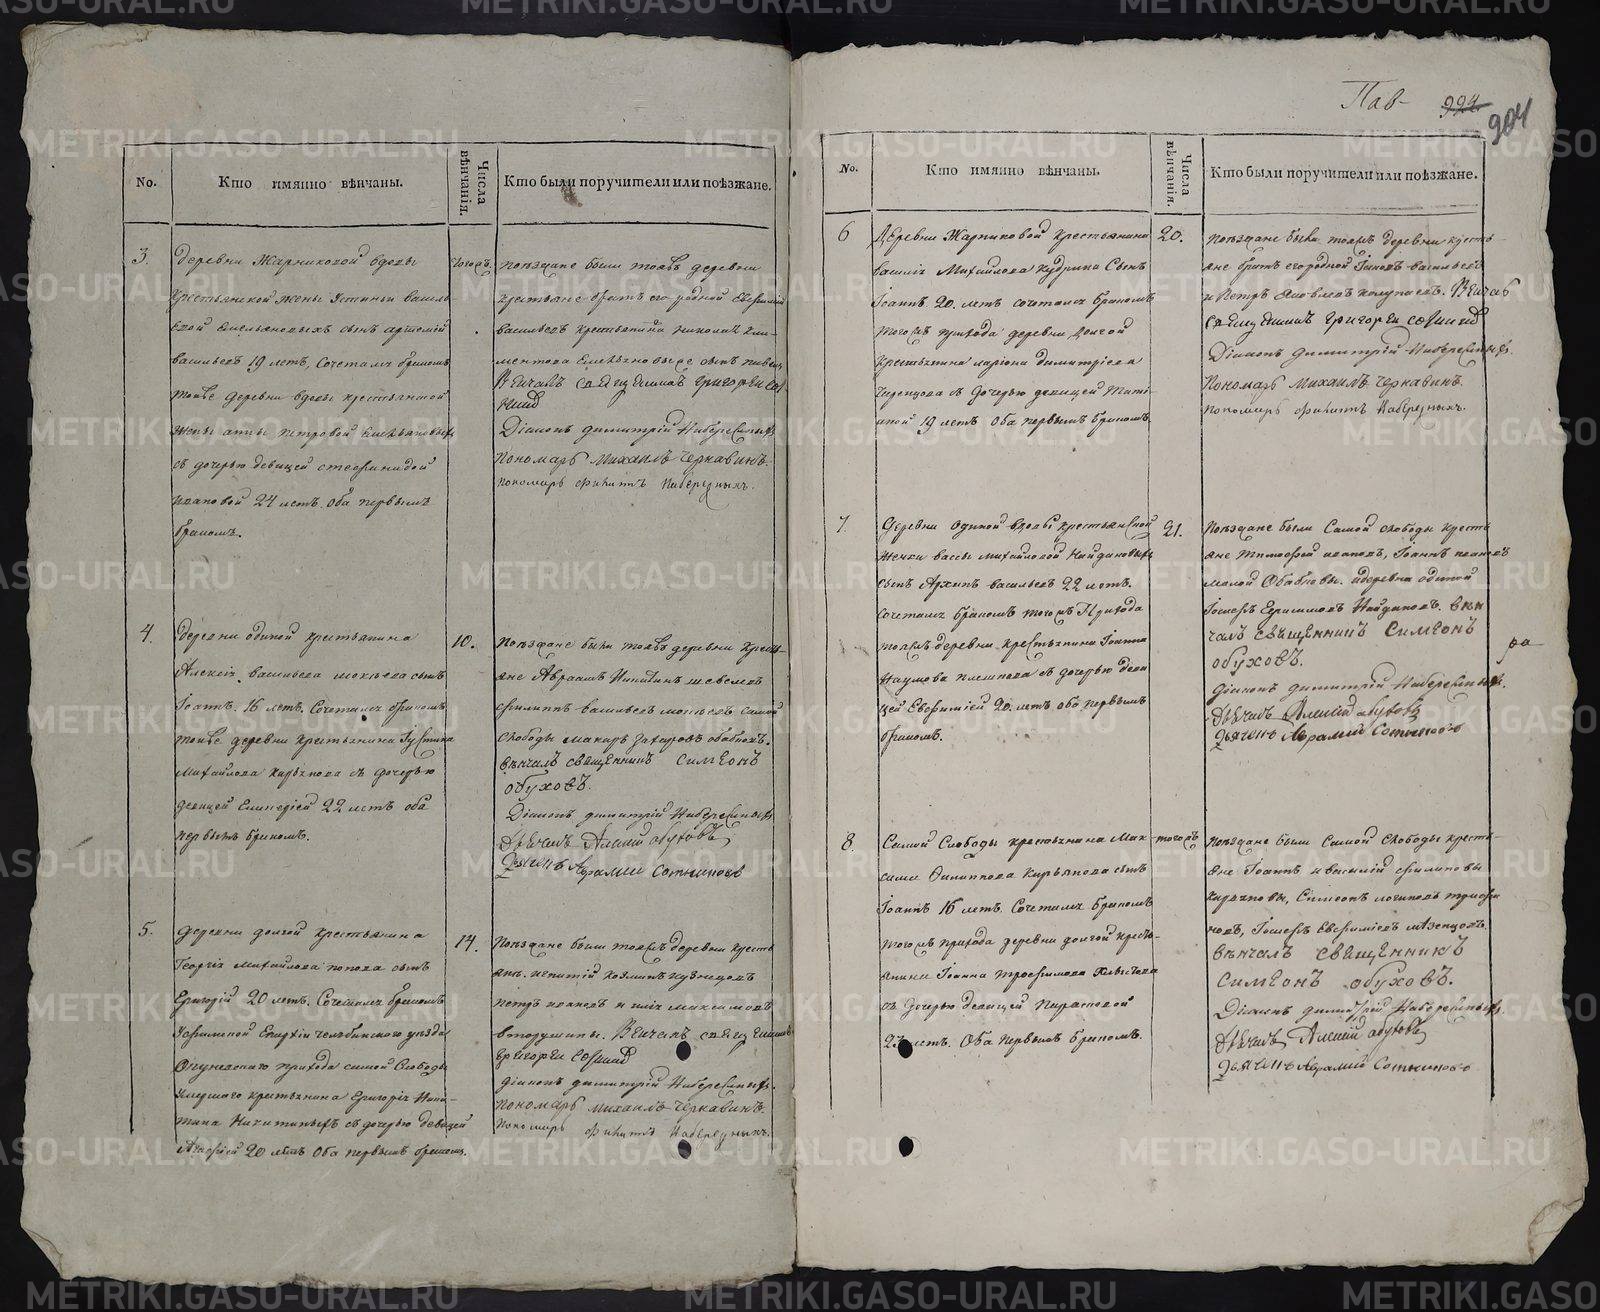 Пав-
994
904
No.
Кто имянно вѣнчаны.
Числа вѣнчанія.
Кто были поручители или поѣзжане.
3.
Деревни Жарниковой вдовы
крестьянской жены Устиньи василь
евой Емельяновыхъ сынъ артемій
васильевъ 19 летъ, Сочетался бракомъ
тояже деревни вдовы крестьянской
жены анны Петровой Емельяновыхъ
съ дочерью девицей стефанидой
ивановой 24 летъ Оба первымъ
бракомъ.
тогожъ.
поѣзжане были тояжъ деревни
крестьяне братъ его родной
васильевъ крестьянина николая кли-
ментова
Венчалъ священникъ григорей

Діаконъ димитрій Набережныхъ
Пономарь михаилъ черкавинъ.
пономарь Набережныхъ.
4.
Деревни одиной крестьянина
Алексѣя васильева сынъ
Іоаннъ 16 летъ. Сочетался бракомъ
тояже деревни крестьянина
Михайлова Кирьянова съ дочерью
девицей 22 летъ оба
первымъ бракомъ.
10.
Поѣзжане были тояжъ деревни кресть-
яне Авраамъ Никитинъ шевелевъ
филиппъ васильевъ самой
слободы макаръ захаровъ обабковъ.
вѣнчалъ священникъ симеонъ
обуховъ.
Діаконъ димитрій Набережныхъ
Дьячекъ Алексій обуховъ
Дьячекъ Аврамій Сотниковъ
5.
Деревни долгой крестьянина
Георгія михайлова попова сынъ
Григорій 20 летъ. Сочетался бракомъ
Уфимской Епархіи челябинскаго уезда
Окуневскаго прихода самой Слободы
крестьянина Григорія Ники-
тина Никитиныхъ съ дочерью девицей
20 летъ Оба первымъ бракомъ.
14.
Поѣзжане были тояжъ деревни кресть
яне. игнатій козминъ кузнецовъ
петръ ивановъ и илія максимовъ
вторушины. Венчалъ священникъ
Григорей
діаконъ димитрій Набережныхъ.
пономарь михаилъ черкавинъ.
Пономарь Набережныхъ.
No.
Кто имянно вѣнчаны.
Числа вѣнчанія.
Кто были поручители или поѣзжане.
6
Деревни Жарниковой крестьянина
василія Михайлова Кудрина Сынъ
Іоаннъ 20. летъ сочетался бракомъ
тогожъ прихода деревни долгой
Крестьянина ларіона димитріева
съ дочерью девицей Тати-
аной 19 летъ Оба первымъ бракомъ.
20.
поѣзжане были тояжъ деревни кресть-
яне братъ его родной васильевъ
и Петръ Яковлевъ Венчалъ
священникъ григорей
Діаконъ димитрій Набережныхъ.
Пономарь михаилъ черкавинъ.
пономарь Набережныхъ.
7.
Деревни одиной вдовы крестьянской
женки вассы михайловой Найдановыхъ
сынъ Архипъ васильевъ 22 летъ.
сочетался бракомъ тогожъ Прихода
тояжъ деревни крестьянина Іоанна
Наумова съ дочерью деви
цей Евфиміей 20 летъ оба первымъ
бракомъ.
21.
поѣзжане были Самой слободы кресть
яне тимофей ивановъ, Іоаннъ ивановъ
Обабковы. и деревни одиной
Іосифъ Герасимовъ Найдановъ. вен
чалъ священникъ симеонъ
обуховъ.
діаконъ димитрій Набережныхъ.
Дьячекъ Алексій обуховъ
Дьячекъ Аврамій Сотниковъ
ра
8.
Самой Слободы крестьянина Мак
сима Филиппова Кирьянова сынъ
Іоаннъ 16 летъ. Сочетался бракомъ
тогожъ прихода деревни долгой кресть-
янина Іоанна трофимова
съ дочерью девицей Параскевой
23 летъ. Оба первымъ бракомъ.
тогожъ
поѣзжане были Самой Слободы кресть-
яне Іоаннъ и василій филиповы
кирьяновы, Симеонъ логиновъ
Іосифъ Евфиміевъ мѣзенцовъ.
вѣнчалъ священникъ
симеонъ обуховъ.
Діаконъ димитрій Набережныхъ
Дьячекъ Алексій обуховъ
Дьячекъ Аврамій Сотниковъ